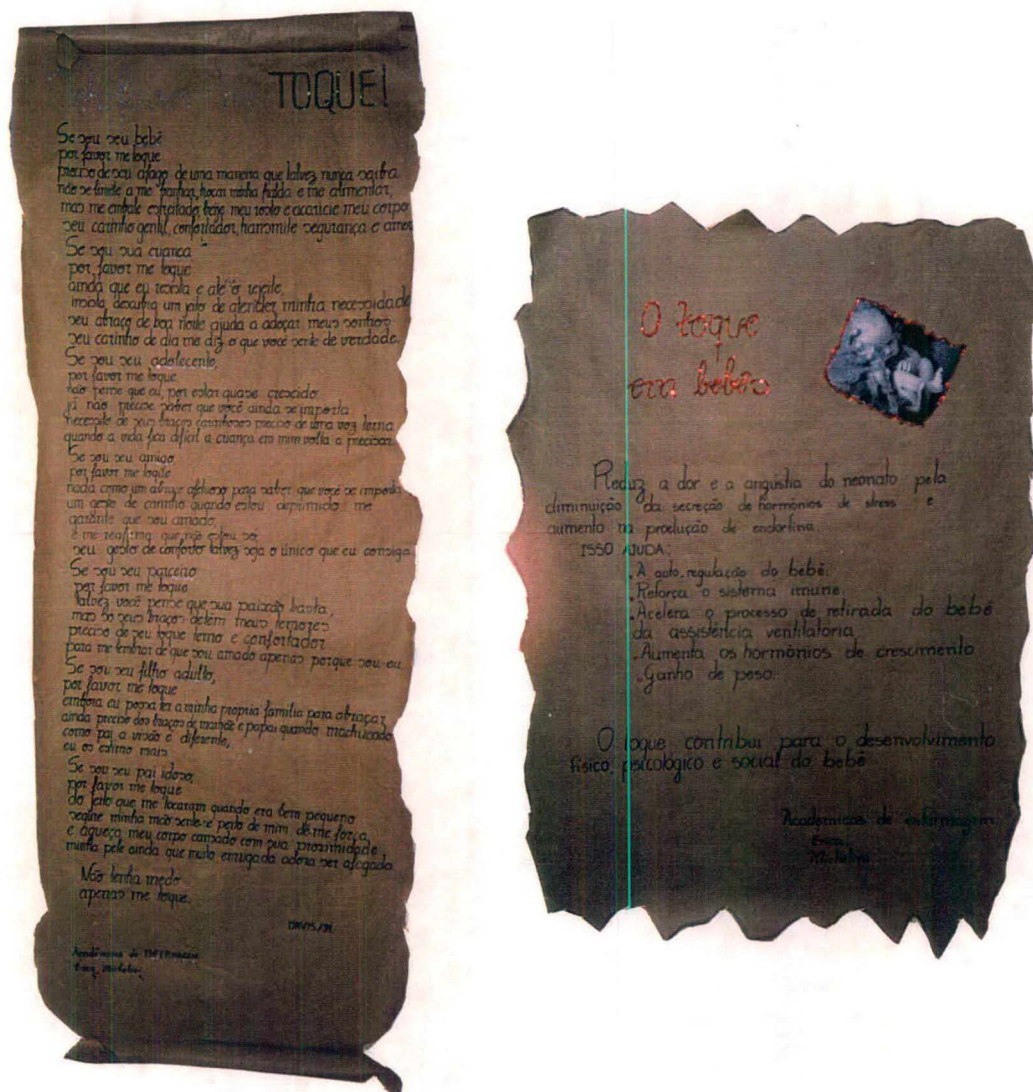 TOQUE!
Se sou seu bebê
por favor me toque
preciso de seu afago de uma maneira que talvez nunca saiba
não se limite a me banhar, trocar minha fralda e me alimentar,
mas me embale estreitado, beije meu rosto e acaricie meu corpo
seu carinho gentil, confortador, transmite segurança e amor
Se sou sua criança
por favor me toque
ainda que eu resista e até o rejeite,
insista, descubra um jeito de atender minha necessidade
seu abraço de boa noite ajuda a adoçar meus sonhos
seu carinho de dia me diz o que você sente de verdade.
Se sou seu adolecente,
por favor me toque
não pense que eu, por estar quase crescido
já não precise saber que você ainda se importa
necessito de seus braços carinhosos preciso de uma voz terna
quando a vida fica difícil a criança em mim volta a precisar.
Se sou seu amigo
por favor me toque
nada como um abraço afetuoso para saber que você se importa
um gesto de carinho quando estou deprimido me
garante que sou amado,
e me reafirma que não estou só,
seu gesto de conforto talvez seja o único que eu consiga
Se sou seu parceiro
por favor me toque
talvez você pense que sua paixão basta,
mas só seus braços detem meus temores
preciso de seu toque terno e confortador
para me lembrar de que sou amado apenas porque sou eu
Se sou seu filho adulto,
por favor me toque
embora eu possa ter a minha propria familia para abraçar
ainda preciso dos braços de mamãe e papai quando machucado
como pai a visão é diferente,
eu os estimo mais
Se sou seu pai idoso,
por favor me toque
do jeito que me tocaram quando era bem pequeno
segure minha mão sente-se perto de mim dê-me força,
e aqueça meu corpo cansado com sua proximidade
minha pele ainda que muito enrugada adora ser afagada
Não tenha medo
apenas me toque.
DAVIS/91
Acadêmicas de ENFERMAGEM
O toque
em bebês
Reduz a dor e a angústia do neonato pela
diminuição da secreção de hormônios de stress e
aumento na produção de endorfina
ISSO AJUDA:
. A auto-regulação do bebê.
. Reforça o sistema imune
. Acelera o processo de retirada do bebê
da assistência ventilatoria
. Aumenta os hormônios de crescimento
. Ganho de peso.
O toque contribui para o desenvolvimento
físico, psicológico e social do bebê
Acadêmicas de enfermagem